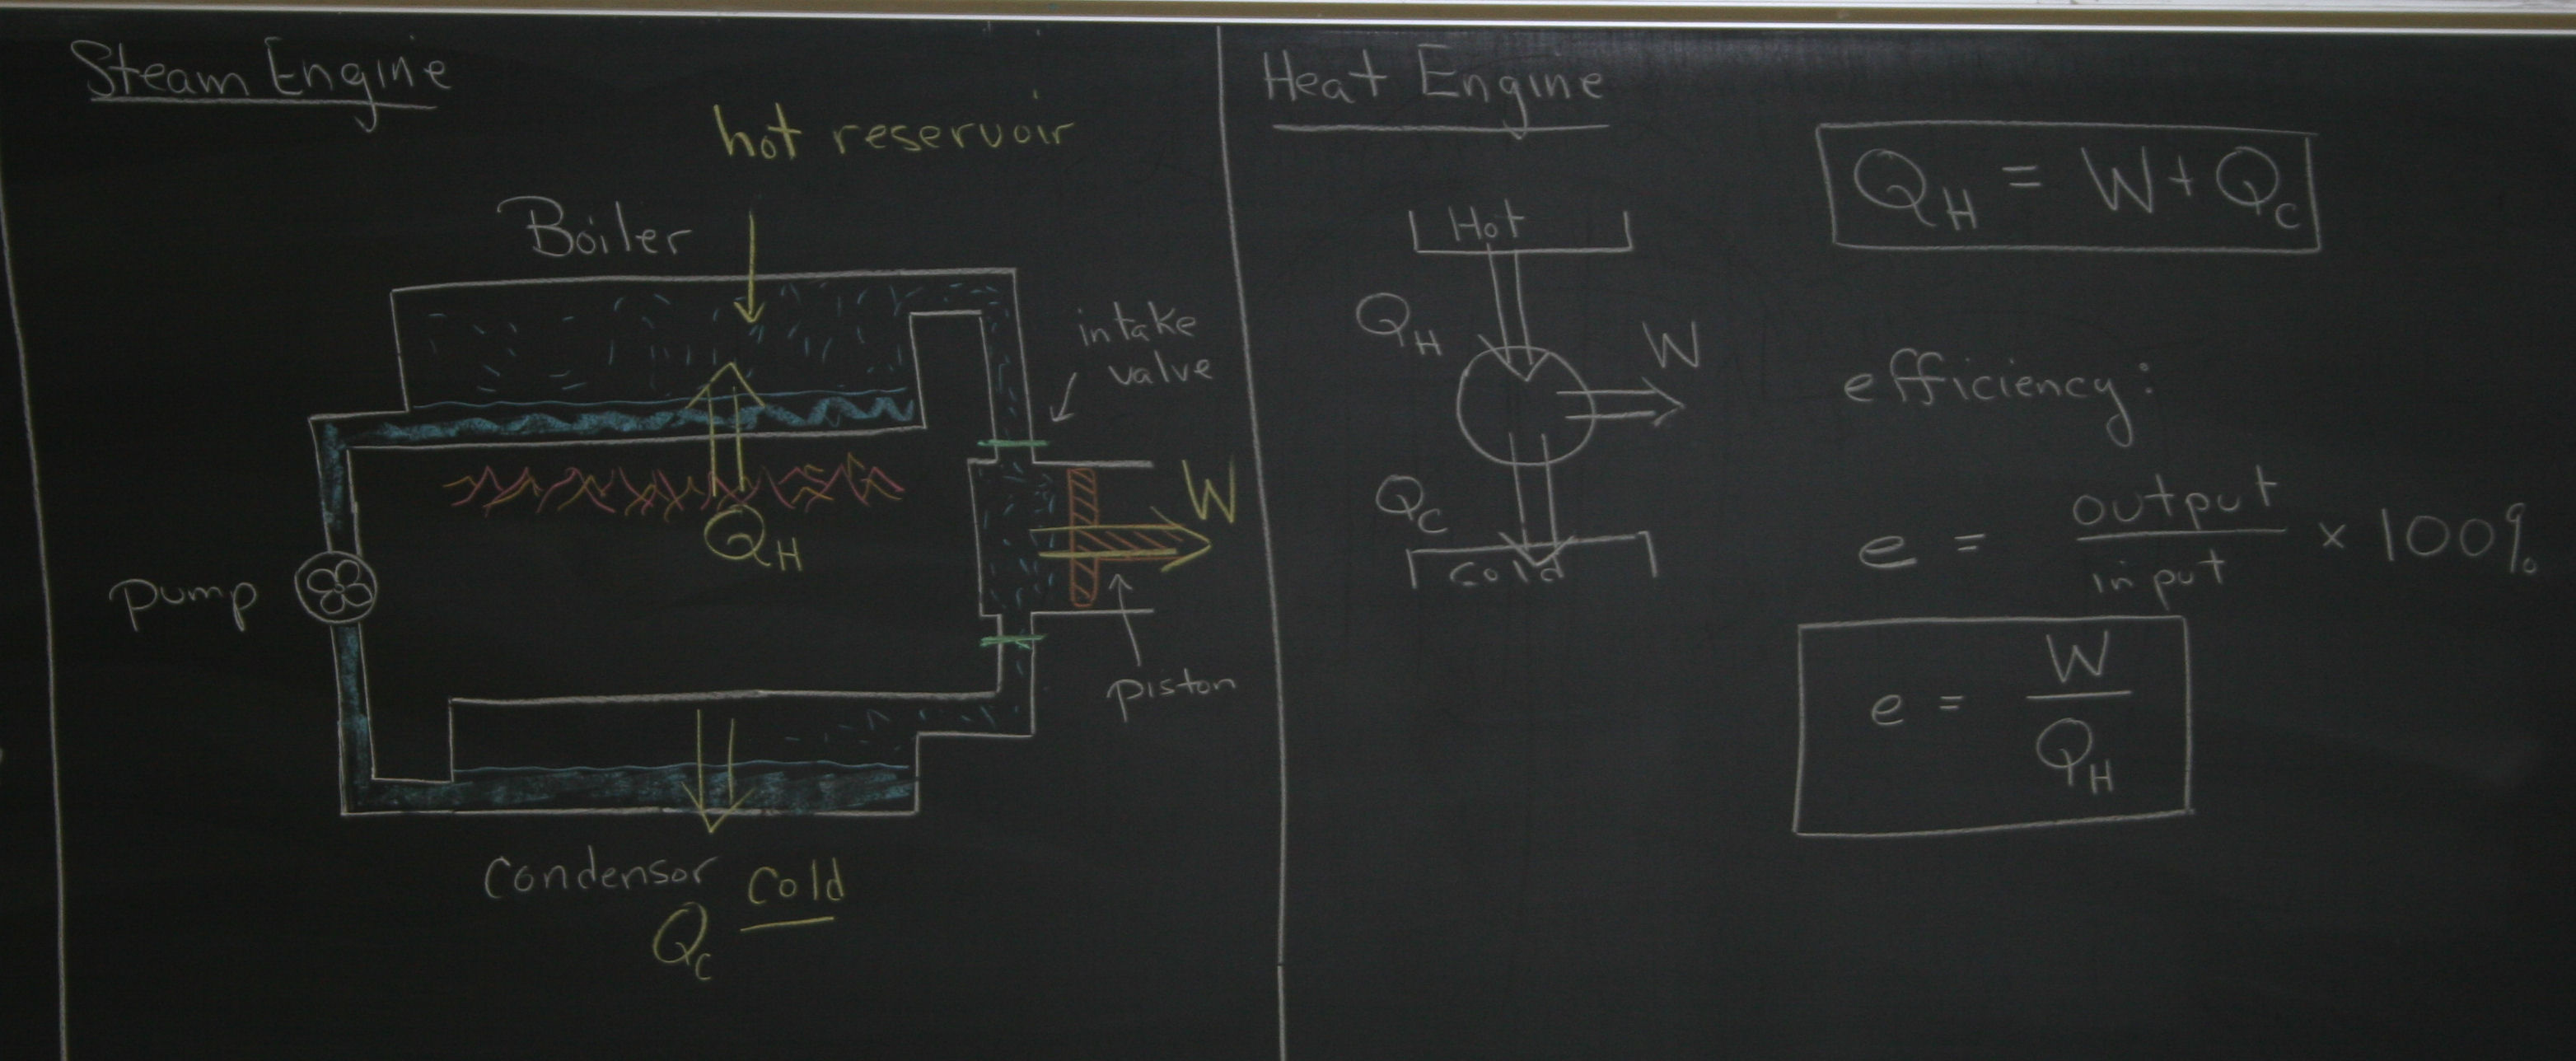 Steam Engine
hot reservoir
Boiler
intake
valve
W
Q_H
pump
piston
Condensor cold
Q_c
Heat Engine
Hot
Q_H
W
Q_c
cold
Q_H = W + Q_c
efficiency:
e = output / input × 100%
e = W / Q_H